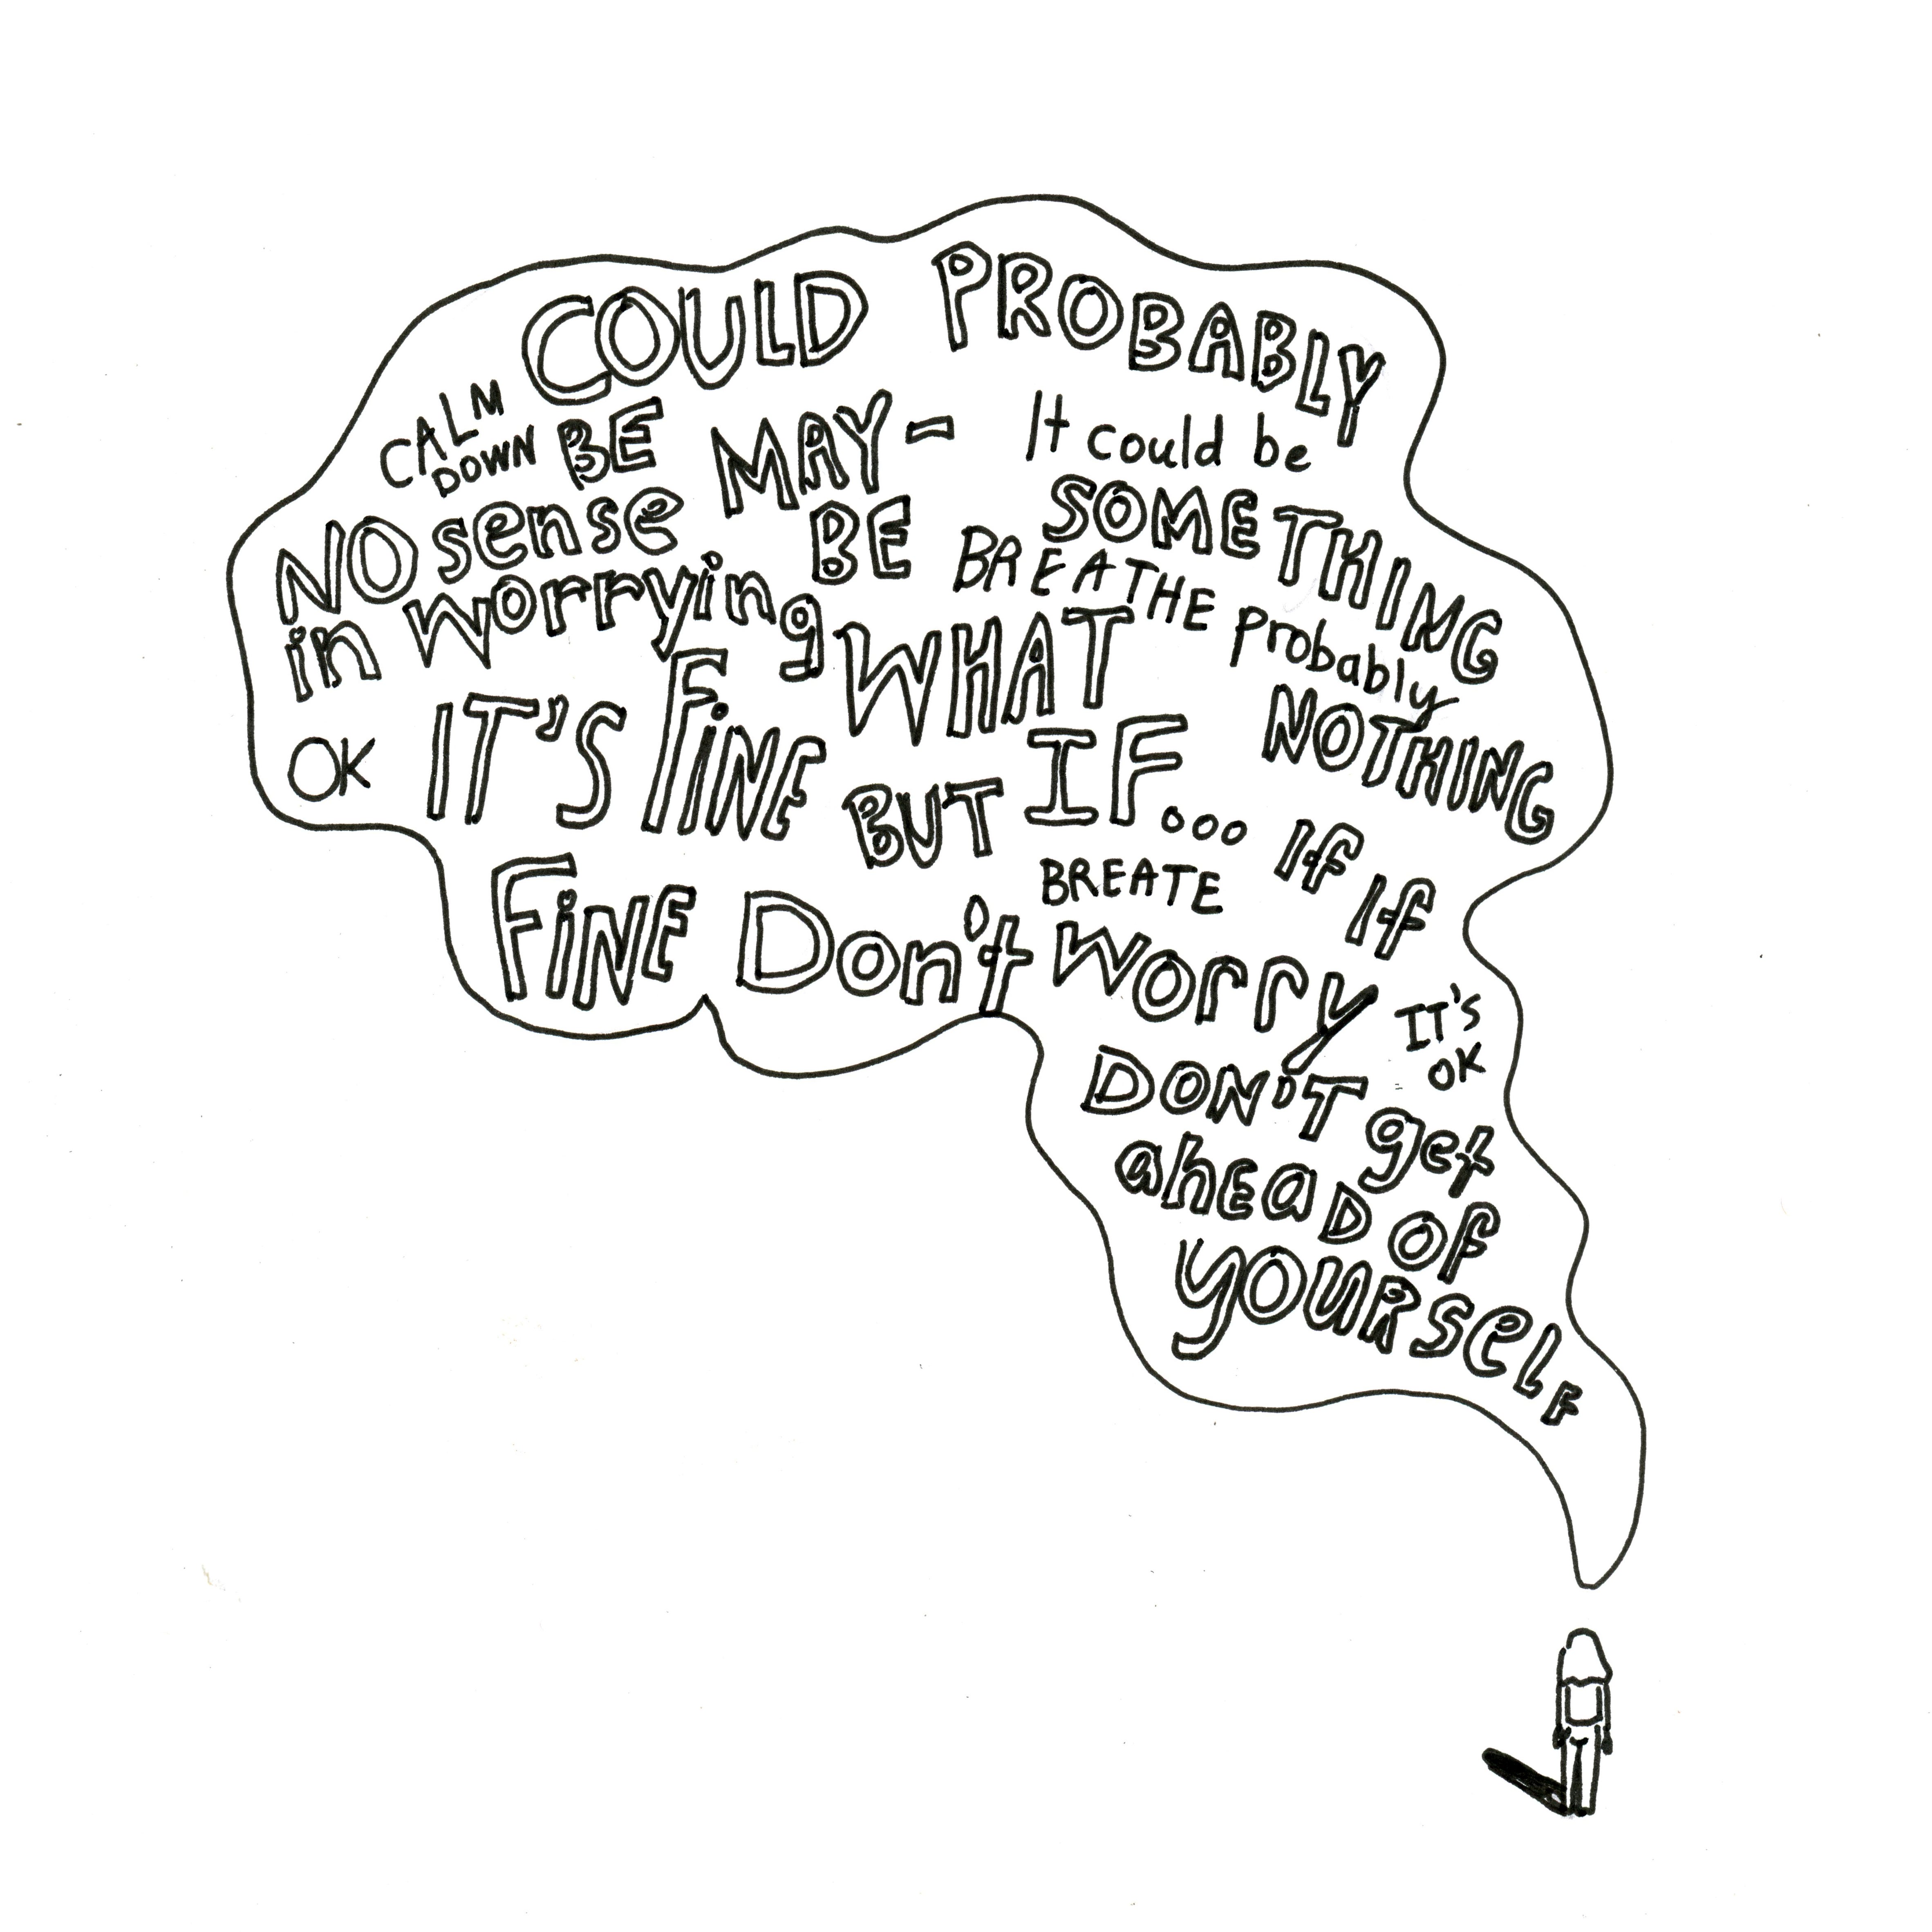 COULD PROBABLY
CALM
DOWN
BE MAY-
BE
It could be
SOMETHING
NO sense
in worrying
BREATHE
probably
NOTHING
WHAT
IF...
OK
IT'S FiNE
BUT
If If
BREATE
FiNE Don't worry
IT'S
OK
DON'T get
ahEaD OF
yOURSelF